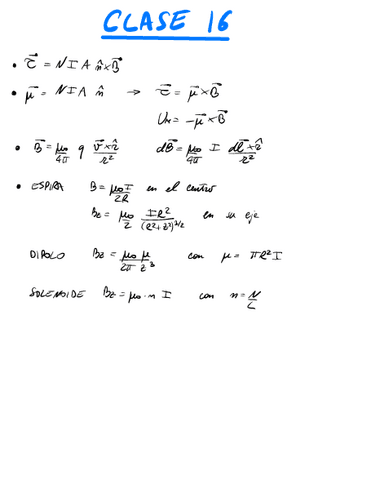 CLASE 16
• τ⃗ = N I A n̂ × B⃗
• μ⃗ = N I A n̂ → τ⃗ = μ⃗ × B⃗
Um = -μ⃗ × B⃗
• B⃗ = μ₀/4π q v⃗ × r̂/r² dB⃗ = μ₀/4π I dl⃗ × r̂/r²
• ESPIRA B = μ₀I/2R en el centro
Bz = μ₀/2 IR²/(R²+z²)^3/2 en su eje
DIPOLO Bz = μ₀/2π μ/z³ con μ = πR²I
SOLENOIDE Bz = μ₀·n I con n = N/L